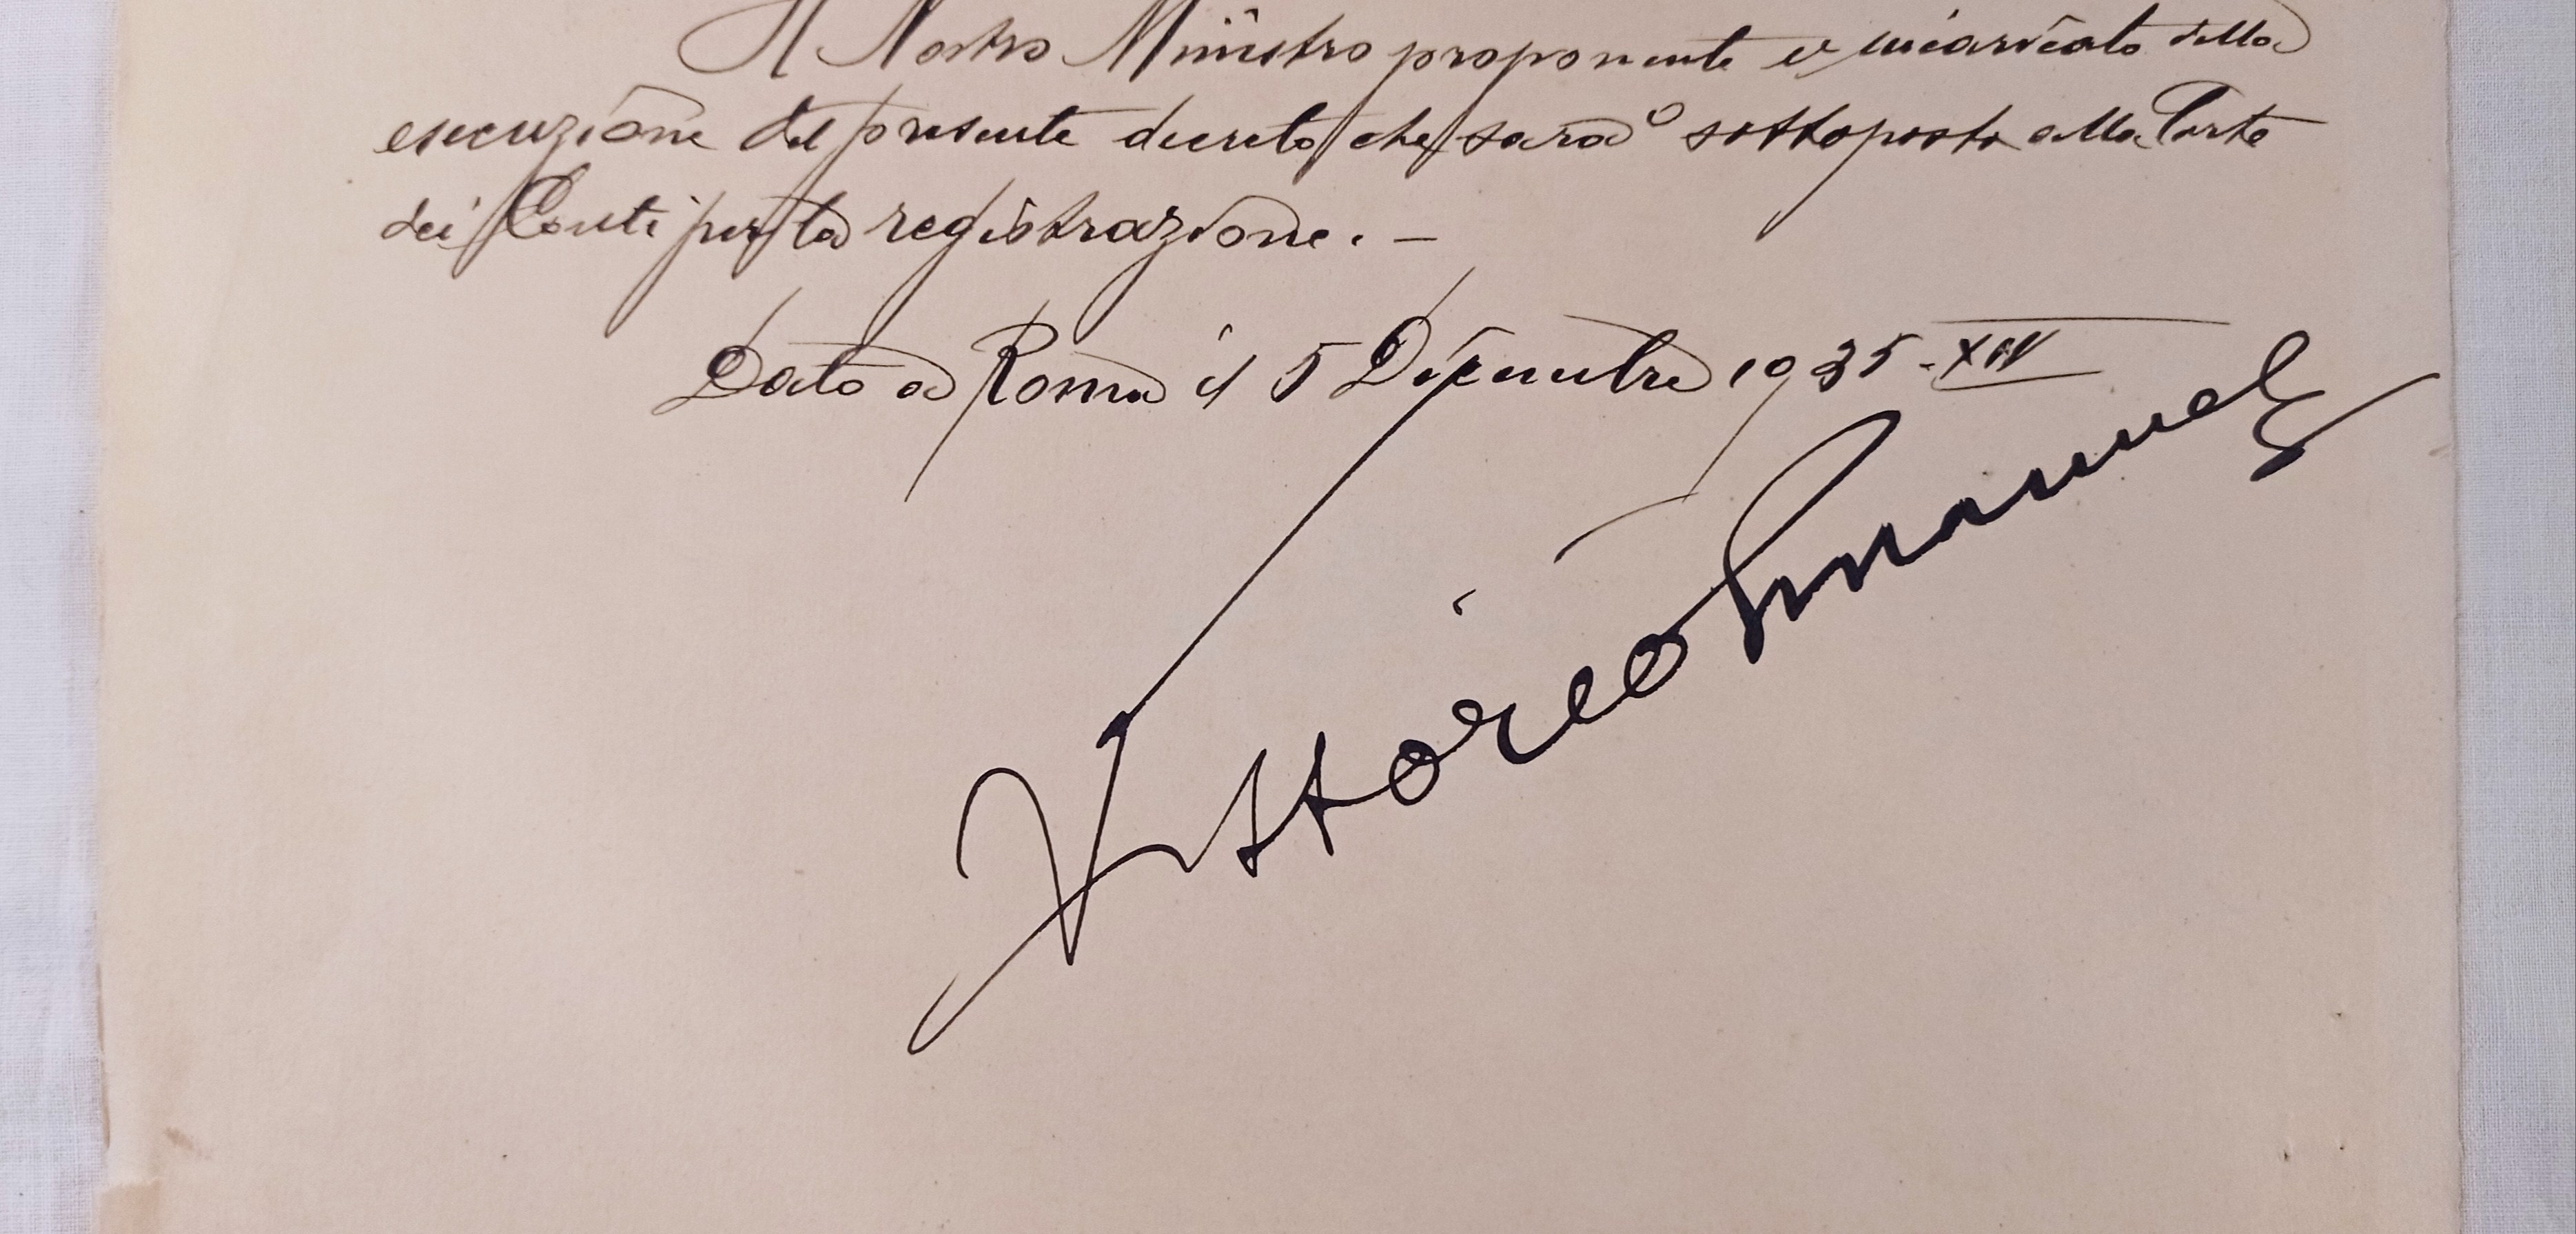 Il Nostro Ministro proponente è incaricato della
esecuzione del presente decreto che sarà sottoposto alla Corte
dei Conti per la registrazione. —
Dato a Roma il 5 Dicembre 1935 - XIV
Vittorio Emanuele